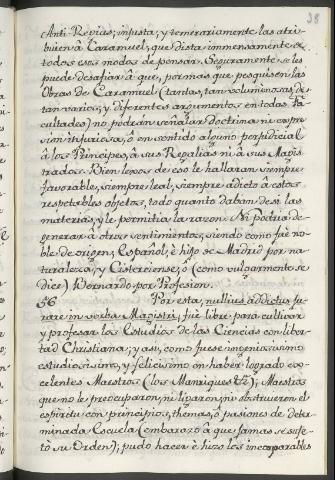 38
Anti-Regias; injusta, y temerariamente las atri-
buien à Caramuel; que dista inmensamente de
todos esos modos de pensar. Seguramente se les
puede desafiar à que, por mas que pesquisen las
Obras de Caramuel (tantas, tan voluminosas, de
tan varios, y diferentes argumentos en todas Fa-
cultades) no podràn señalar doctrina ni expre-
sion injuriosa, ò en sentido alguno perjudicial
à los Principes, à sus Regalias ni à sus Magis-
trados. Bien lexos de eso le hallaran siempre
favorable, siempre leal, siempre adicto à estos
respetables objetos, todo quanto daban de si las
materias, y le permitia la razon. Ni podria de-
generar à otros sentimientos, siendo como fuè no-
ble de origen, Español, è hijo de Madrid por na-
turaleza, y Cisterciense, ò (como vulgarmente se
dice) Bernardo por Profesion.
56 Por esta, nullius addictus ju-
rare in verba Magistri, fuè libre para cultivar
y profesar los Estudios de las Ciencias con liber-
tad Christiana; y asi, como fuese ingeniosisimo
estudiosisimo, y felicisimo en haber logrado ex-
celentes Maestros (los Manriques &c.), Maestros
que no le preocuparon, ni ligaron, ni obstruieron el
espiritu con principios, themas, ò pasiones de deter-
minada Escuela (embarazo à que jamas se suje-
tò su Orden); pudo hacer è hizo los incomparables